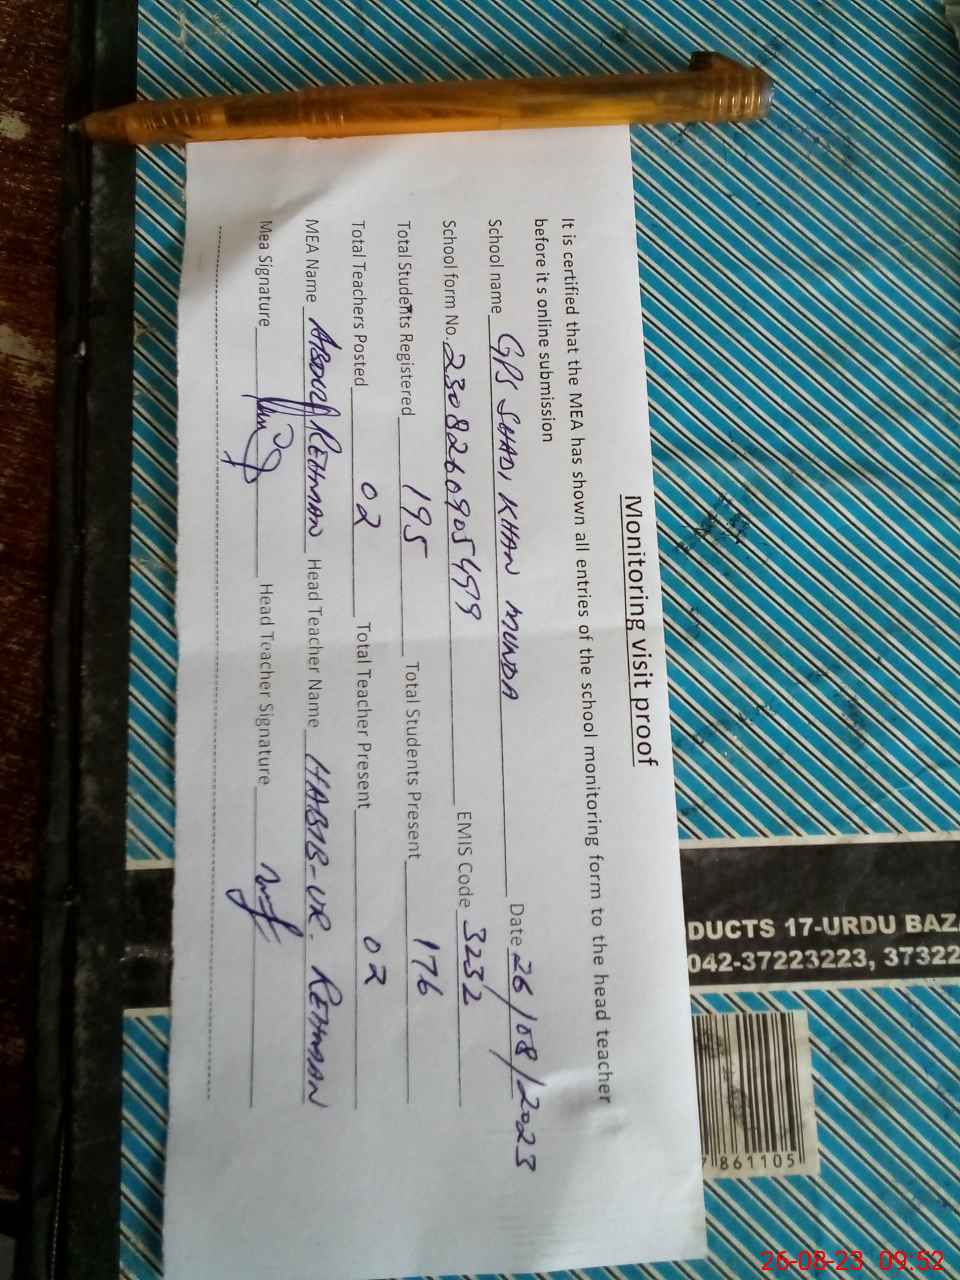 Monitoring visit proof
It is certified that the MEA has shown all entries of the school monitoring form to the head teacher
before it s online submission
School name GPS SHADI KHAN MUNDA Date 26/08/2023
School form No. 23082609054979 EMIS Code 3232
Total Students Registered 195 Total Students Present 176
Total Teachers Posted 02 Total Teacher Present 02
MEA Name ABDUL REHMAN Head Teacher Name HABIB-UR. REHMAN
Mea Signature Head Teacher Signature
DUCTS 17-URDU BAZ
042-37223223, 37322
861105
26-08-23 09:52